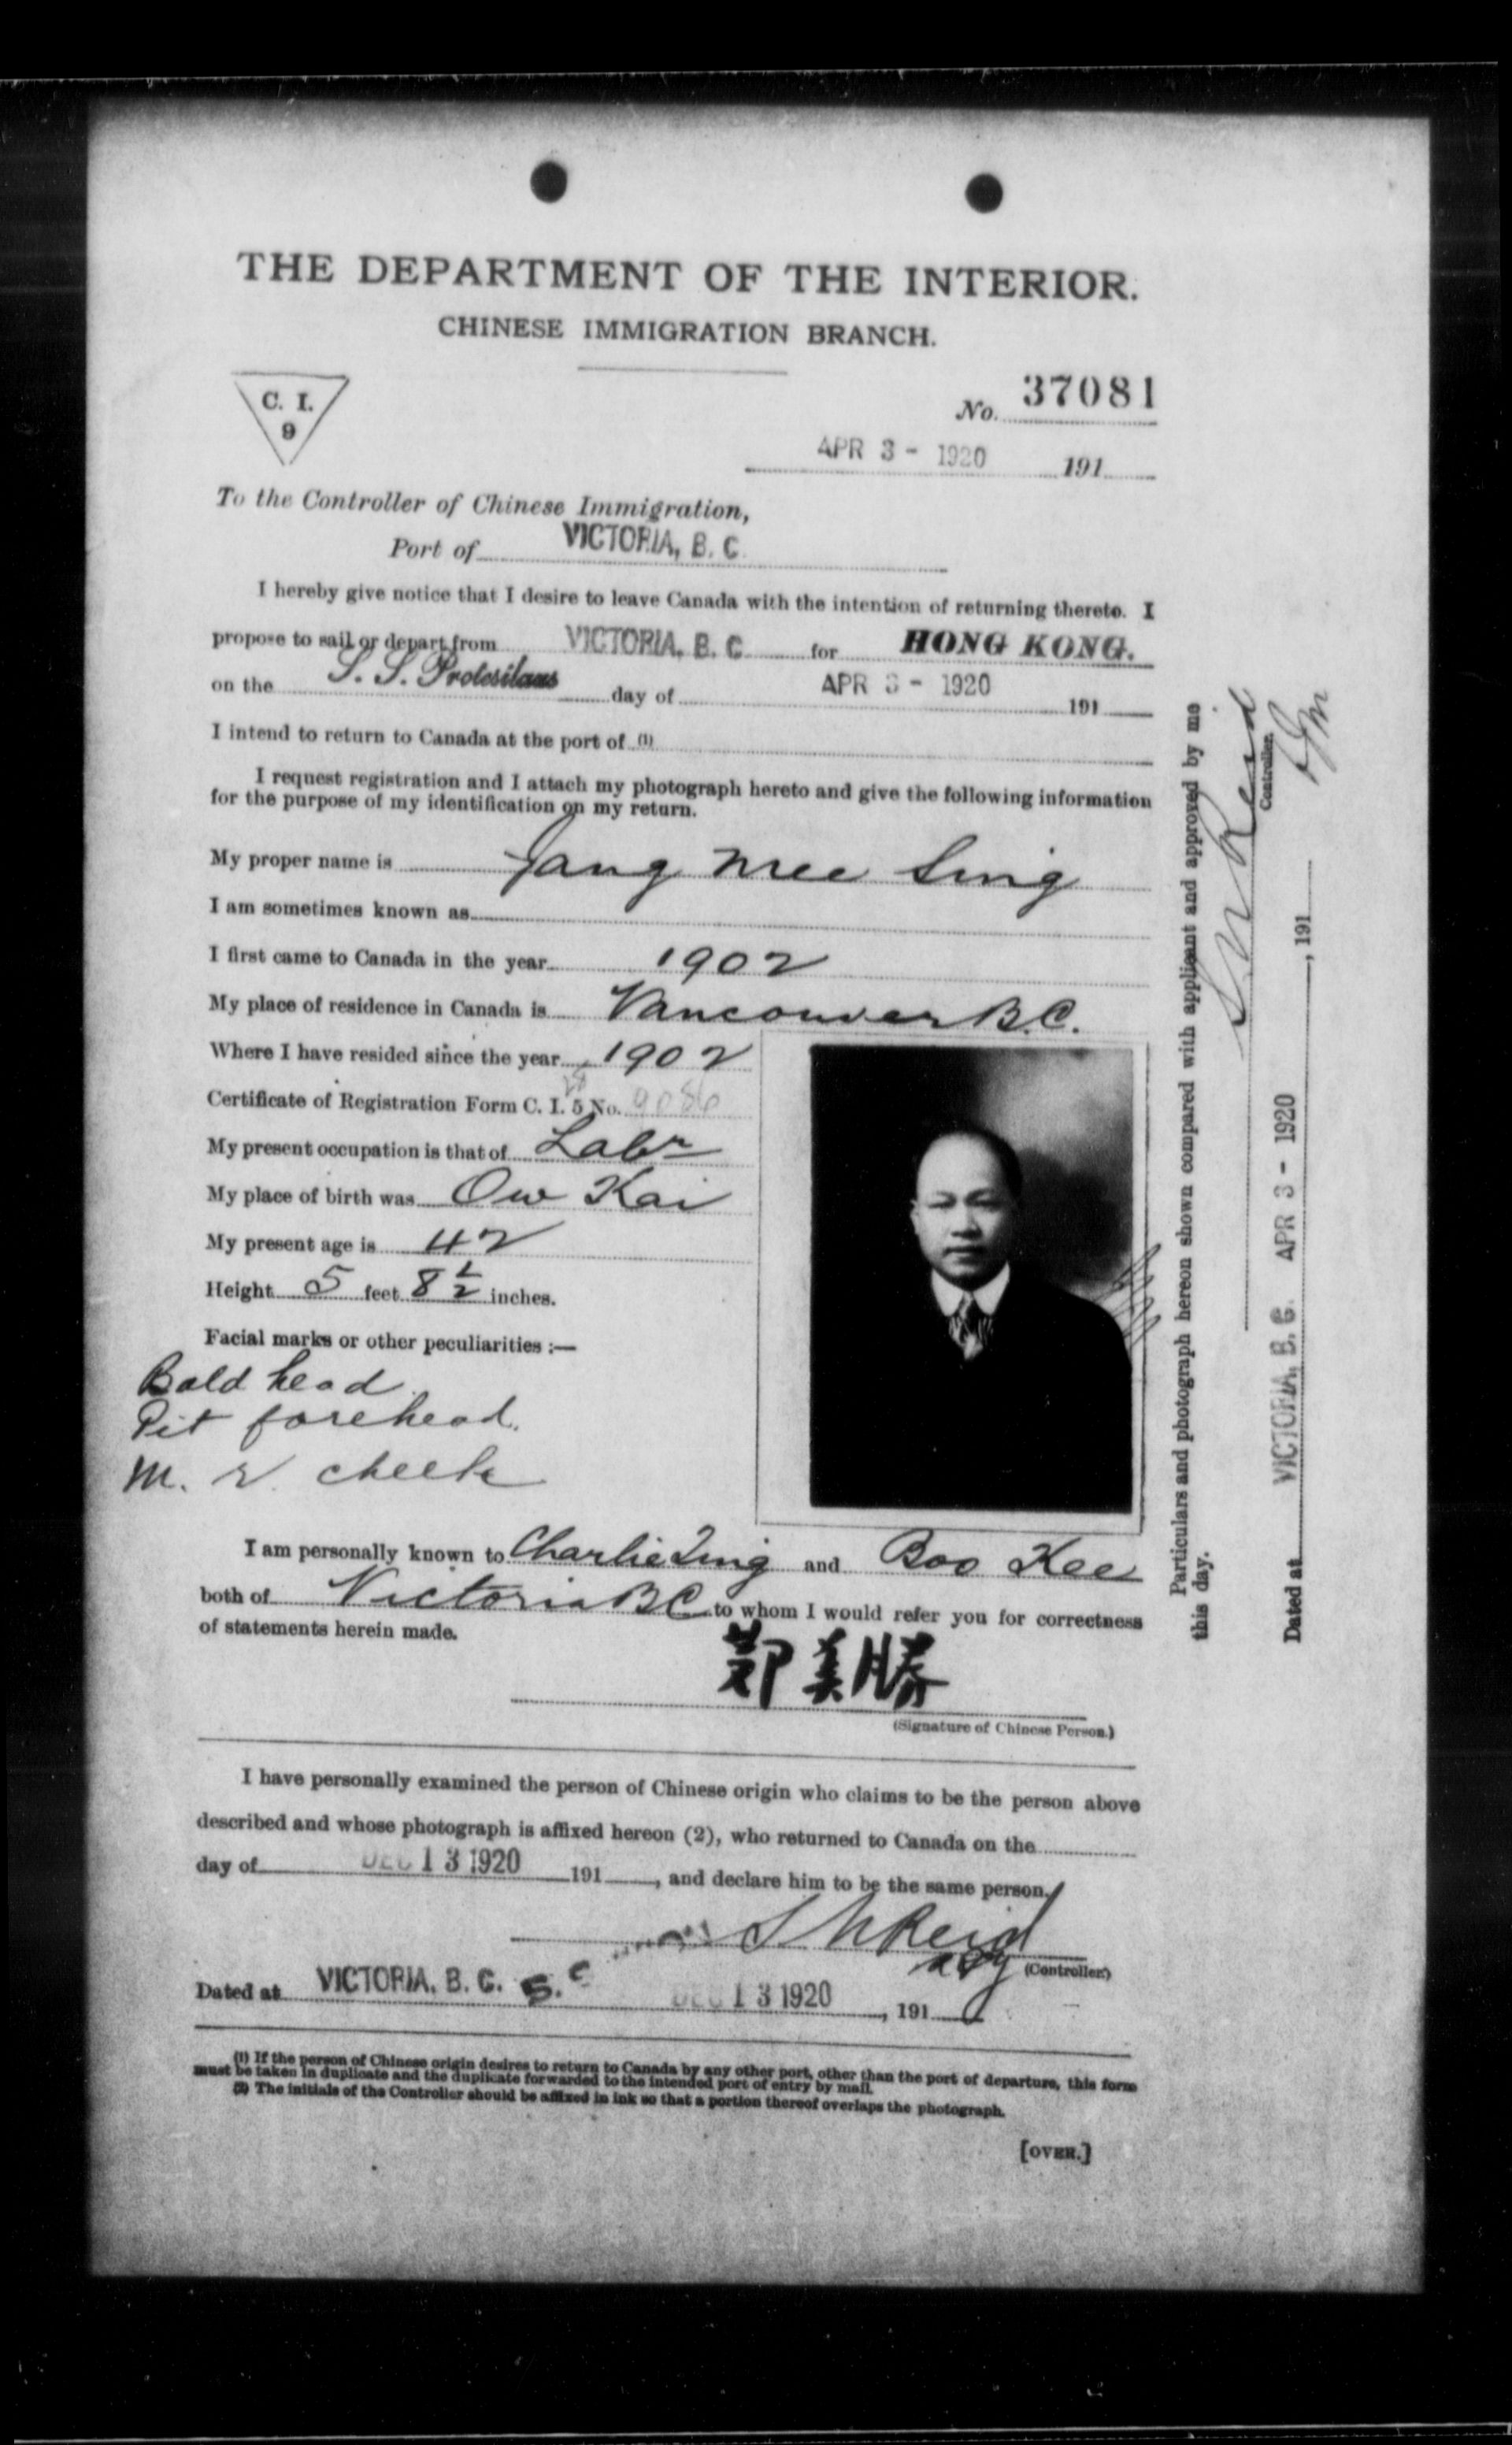 THE DEPARTMENT OF THE INTERIOR.
CHINESE IMMIGRATION BRANCH.
C. I.
9
No. 37081
APR 3 - 1920 191
To the Controller of Chinese Immigration,
Port of VICTORIA, B. C.
I hereby give notice that I desire to leave Canada with the intention of returning thereto. I
propose to sail or depart from VICTORIA, B. C. for HONG KONG.
on the S. S. Protesilaus day of APR 3 - 1920 191
I intend to return to Canada at the port of (1)
I request registration and I attach my photograph hereto and give the following information
for the purpose of my identification on my return.
My proper name is Jang Mee Sing
I am sometimes known as
I first came to Canada in the year 1902
My place of residence in Canada is Vancouver B.C.
Where I have resided since the year 1902
Certificate of Registration Form C. I. 5 No. 9086
My present occupation is that of Labr
My place of birth was Ow Kai
My present age is 42
Height 5 feet 8 1/2 inches.
Facial marks or other peculiarities :—
Bald head
Pit forehead.
M. r. cheek
I am personally known to Charlie Sing and Boo Kee
both of Victoria BC to whom I would refer you for correctness
of statements herein made.
鄭美勝
(Signature of Chinese Person.)
I have personally examined the person of Chinese origin who claims to be the person above
described and whose photograph is affixed hereon (2), who returned to Canada on the
day of DEC 13 1920 191 , and declare him to be the same person.
(Controller.)
Dated at VICTORIA, B. C. DEC 13 1920 , 191
(1) If the person of Chinese origin desires to return to Canada by any other port, other than the port of departure, this form
must be taken in duplicate and the duplicate forwarded to the intended port of entry by mail.
(2) The initials of the Controller should be affixed in ink so that a portion thereof overlaps the photograph.
[OVER.]
Particulars and photograph hereon shown compared with applicant and approved by me
this day.
Controller.
Dated at VICTORIA, B. C. APR 3 - 1920 , 191